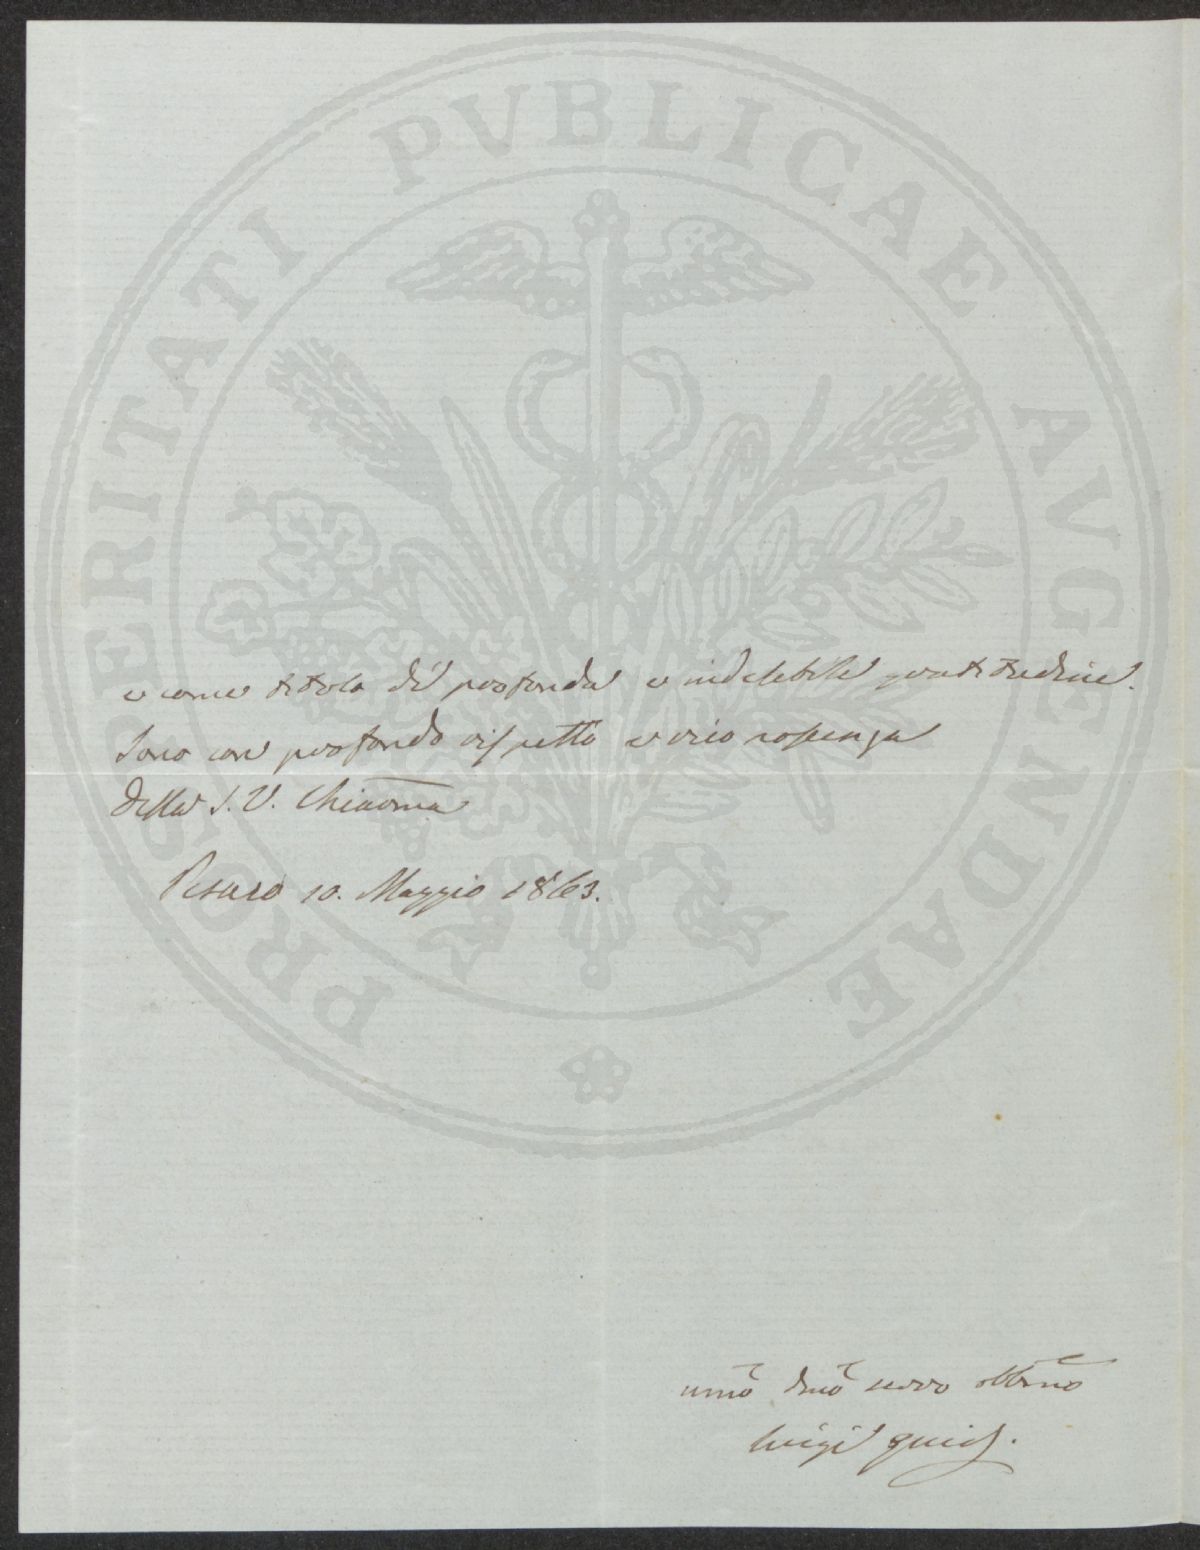 PROSPERITATI PVBLICAE AVGENDAE
e come titolo di profonda e indelebile gratitudine.
Sono con profondo rispetto e riconoscenza
della S. V. Chiarma
Pesaro 10. Maggio 1863.
umo dmo servo obbmo
Luigi Guidi.